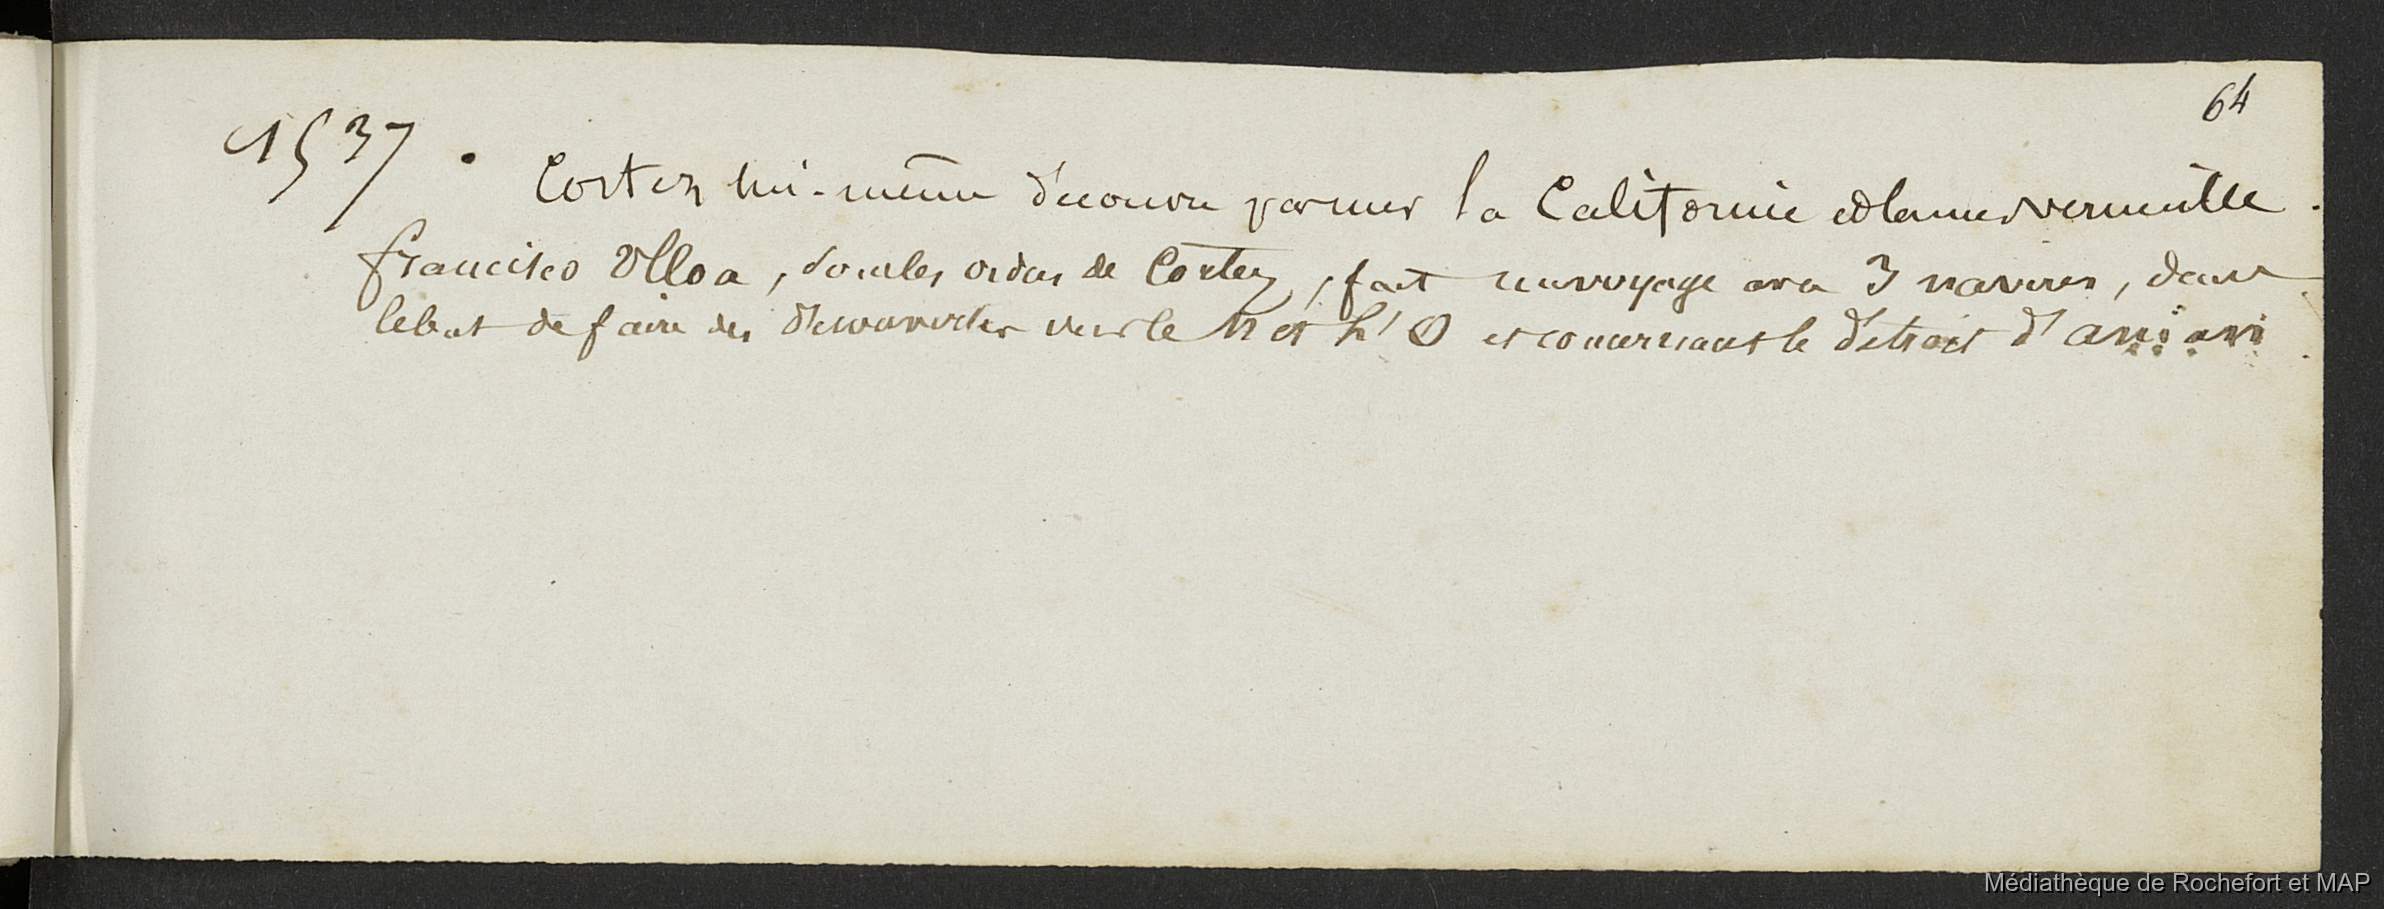 64
1537.
Cortez lui-même découvre par mer la Californie et la mer vermeille.
francisco Ulloa, sous les ordres de Cortez, fait un voyage avec 3 navires, dans
le but de faire des découvertes vers le N et l'O et concernant le détroit d'aniani.
Médiathèque de Rochefort et MAP